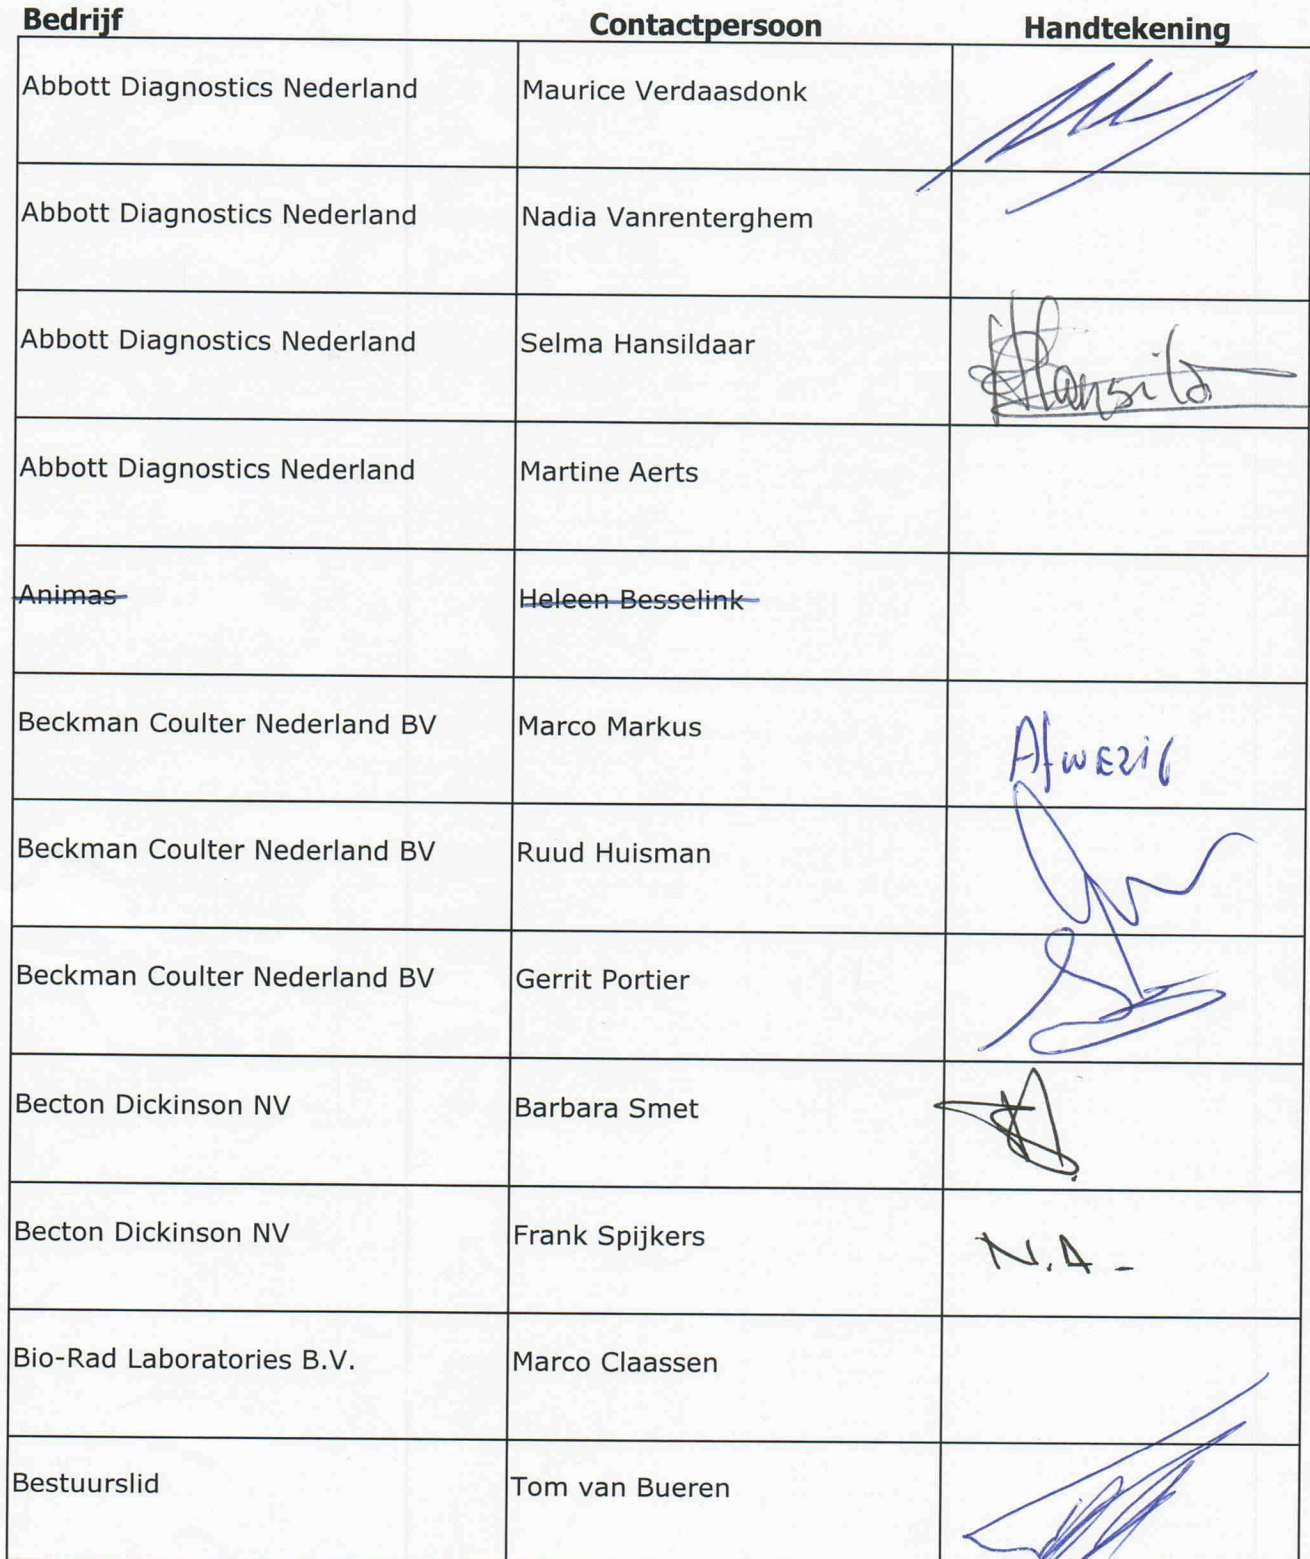 Bedrijf Contactpersoon Handtekening
Abbott Diagnostics Nederland Maurice Verdaasdonk
Abbott Diagnostics Nederland Nadia Vanrenterghem
Abbott Diagnostics Nederland Selma Hansildaar
Abbott Diagnostics Nederland Martine Aerts
Animas Heleen Besselink
Beckman Coulter Nederland BV Marco Markus AfwEziG
Beckman Coulter Nederland BV Ruud Huisman
Beckman Coulter Nederland BV Gerrit Portier
Becton Dickinson NV Barbara Smet
Becton Dickinson NV Frank Spijkers N.A-
Bio-Rad Laboratories B.V. Marco Claassen
Bestuurslid Tom van Bueren